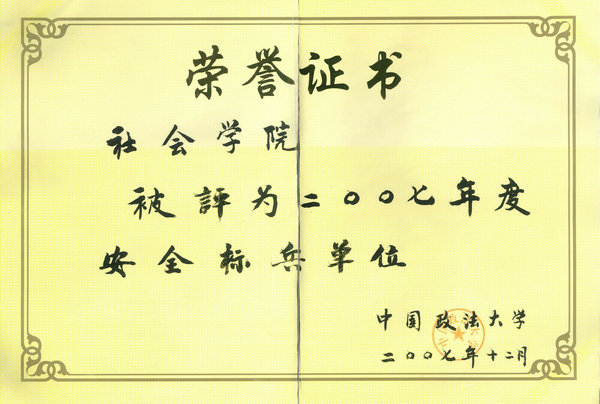 荣誉证书
社会学院
被評为二〇〇七年度
安全标兵单位
中国政法大学
二〇〇七年十二月